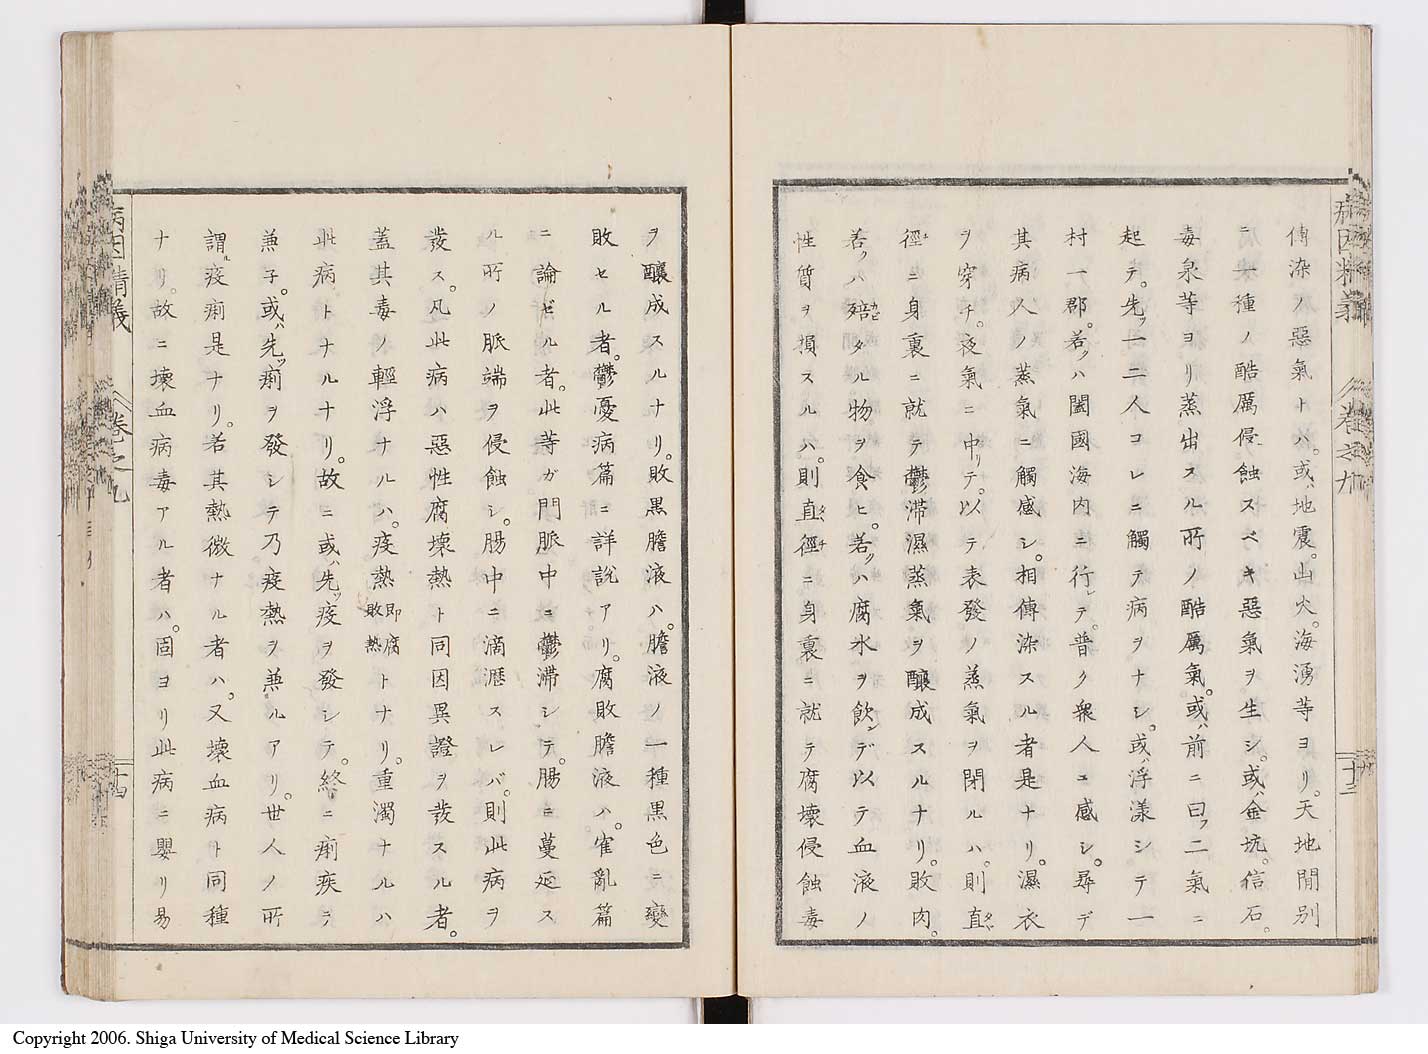 傳染ノ惡氣トハ。或ハ地震。山火。海湧等ヨリ。天地間別
ニ一種ノ酷厲侵蝕スベキ惡氣ヲ生シ。或ハ金坑。信石。
毒泉等ヨリ蒸出スル所ノ酷厲氣。或ハ前ニ曰フ二氣ニ
起テ。先ツ一二人コレニ觸テ病ヲナシ。或ハ浮漾シテ一
村一郡。若クハ闔國海内ニ行レテ。普ク衆人ニ感シ。尋デ
其病人ノ蒸氣ニ觸感シ。相傳染スル者是ナリ。濕衣
ヲ穿チ。夜氣ニ中リテ。以テ表發ノ蒸氣ヲ閉ルハ。則直
徑ニ身裏ニ就テ鬱滯濕蒸氣ヲ釀成スルナリ。敗肉。
若クハ殕タル物ヲ食ヒ。若クハ腐水ヲ飲ンデ以テ血液ノ
性質ヲ損スルハ。則直徑ニ身裏ニ就テ腐壞侵蝕毒
ヲ釀成スルナリ。敗黑膽液ハ。膽液ノ一種黑色ニ變
敗セル者。鬱憂病篇ニ詳説アリ。腐敗膽液ハ。霍亂篇
ニ論ゼル者。此等ガ門脈中ニ鬱滯シテ。腸ニ蔓延ス
ル所ノ脈端ヲ侵蝕シ。腸中ニ滴瀝スレバ。則此病ヲ
發ス。凡此病ハ惡性腐壞熱ト同因異證ヲ發スル者。
蓋其毒ノ輕浮ナルハ。疫熱即腐敗熱トナリ。重濁ナルハ
此病トナルナリ。故ニ或ハ先ツ疫ヲ發シテ。終ニ痢疾ヲ
兼子。或ハ先ツ痢ヲ發シテ乃疫熱ヲ兼ルアリ。世人ノ所
謂ル疫痢是ナリ。若其熱微ナル者ハ。又壞血病ト同種
ナリ。故ニ壞血病毒アル者ハ。固ヨリ此病ニ嬰リ易
病因精義
卷之九
十三
病因精義
卷之九
十四
Copyright 2006. Shiga University of Medical Science Library